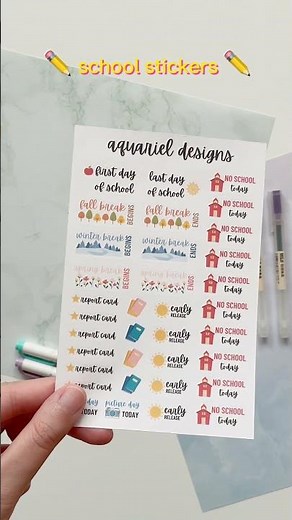 school stickers
aquariel designs
first day of school
last day of school
NO SCHOOL today
fall break BEGINS
fall break ENDS
NO SCHOOL today
winter break BEGINS
winter break ENDS
NO SCHOOL today
NO SCHOOL today
spring break BEGINS
spring break ENDS
NO SCHOOL today
report card
early RELEASE
NO SCHOOL today
report card
report card
early RELEASE
NO SCHOOL today
report card
early RELEASE
NO SCHOOL today
report card
report card
early RELEASE
NO SCHOOL today
day TODAY
picture day TODAY
early RELEASE
NO SCHOOL today